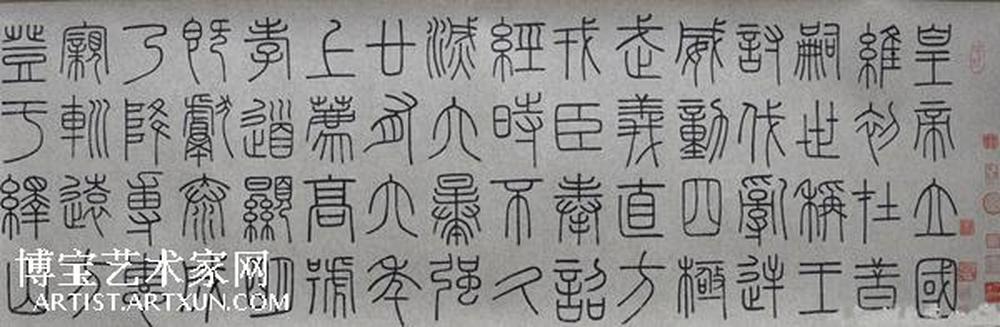 皇帝立國
維初在昔
嗣世稱王
討伐亂逆
威動四極
武義直方
戎臣奉詔
經時不久
滅六暴強
廿有六年
上薦高號
孝道顯明
既獻泰成
乃降專惠
親巡遠方
登于繹山
博宝艺术家网
ARTIST.ARTXUN.COM